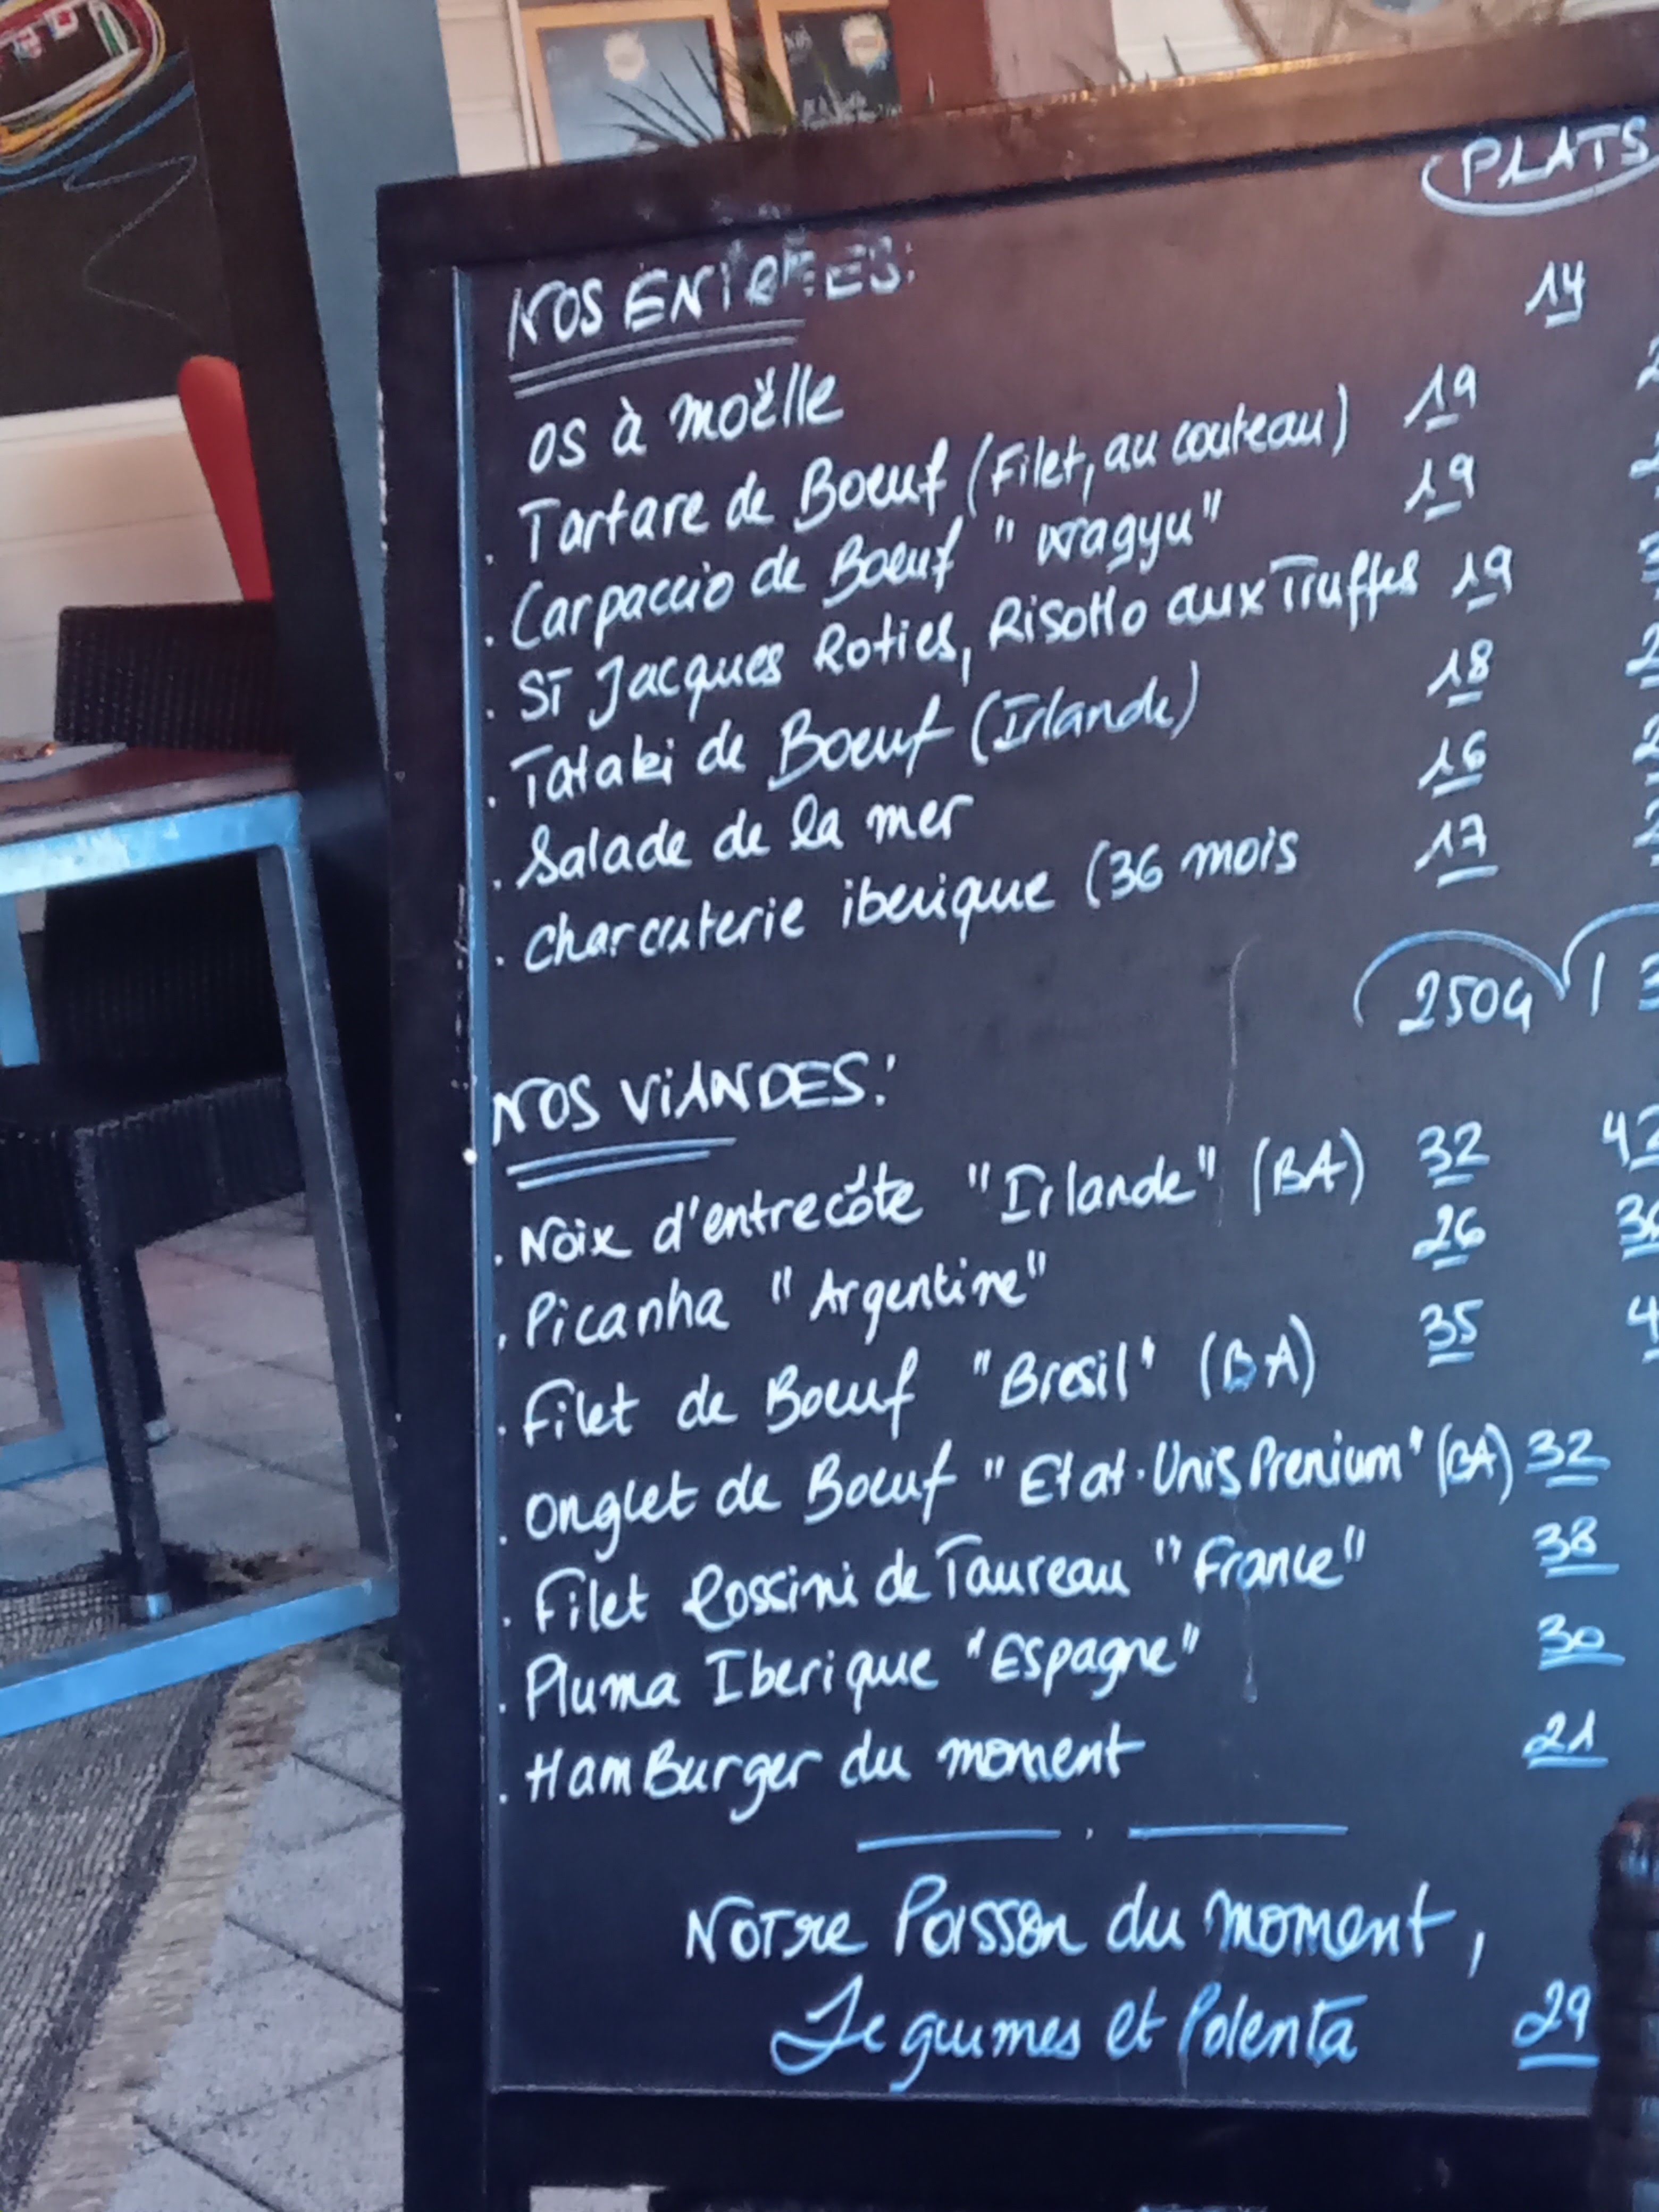 PLATS
NOS ENTREES:
14
OS à moëlle
. Tartare de Boeuf (Filet, au couteau) 19
. Carpaccio de Boeuf "wagyu" 19
. ST Jacques Roties, Risotto aux Truffes 19
. Tataki de Boeuf (Irlande) 18
. Salade de la mer 16
. Charcuterie iberique (36 mois 17
250G
NOS ViANDES:
. Noix d'entrecôte "Irlande" (BA) 32 42
. Picanha "Argentine" 26
. Filet de Boeuf "Bresil" (BA) 35
. Onglet de Boeuf "Etat-Unis Prenium" (BA) 32
. Filet Rossini de Taureau "France" 38
. Pluma Iberique "Espagne" 30
. HamBurger du moment 21
Notre Poisson du moment,
Legumes et Polenta 29